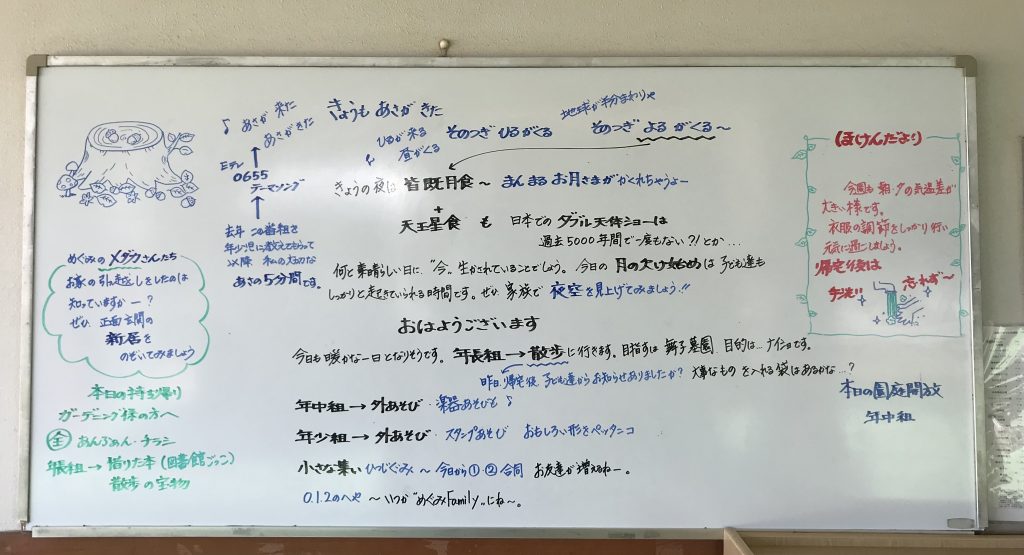 ♪ あさが 来た
あさが きた
きょうも あさが きた
ひるが 来る
昼がくる
そのつぎ ひるが くる
地球が半分まわりゃ
そのつぎ よる がくる〜
Eテレ
0655
テーマソング
去年 この番組を
年少児に教えてもらって
以降 私の大切な
あさの5分間です。
きょうの夜は 皆既月食〜 まんまるお月さまがかくれちゃうよー
+
天王星食 も 日本での ダブル天体ショーは
過去5000年間で一度もない?!とか...
何と素晴らしい日に、“今”生かされていることでしょう。今日の 月の欠け始めは 子ども達も
しっかりと起きていられる時間です。ぜひ、家族で 夜空を見上げてみましょう!!
おはようございます
今日も暖かな一日となりそうです。年長組→散歩に行きます。目指すは 舞子墓園、目的は...ナイショです。
昨日、帰宅後、子ども達からお知らせありましたか? 大事なもの を入れる袋はあるかな...?
年中組→外あそび・楽器あそびも♪
年少組→外あそび・スタンプあそび おもしろい形をペッタンコ
小さな集い ひつじぐみ〜 今日から①②合同 お友達が増えるねー。
0.1.2のへや 〜いつか“めぐみFamily”にね〜。
めぐみの メダカさんたち
お家の引越しをしたのは
知っていますかー?
ぜひ 正面玄関の
新居を
のぞいてみましょう
本日の持ち帰り
ガーデニング様の方へ
全 あんふぁん・チラシ
年長組→借りた本(図書館ごっこ)
散歩の宝物
ほけんだより
今週も 朝・夕の気温差が
大きい様です。
衣服の調節をしっかり行い
元気に過ごしましょう。
帰宅後は
手洗い 忘れず〜
本日の園庭開放
年中組